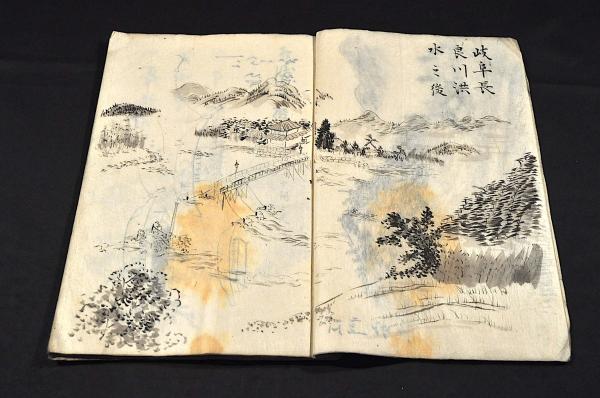 岐阜長
良川洪
水之後